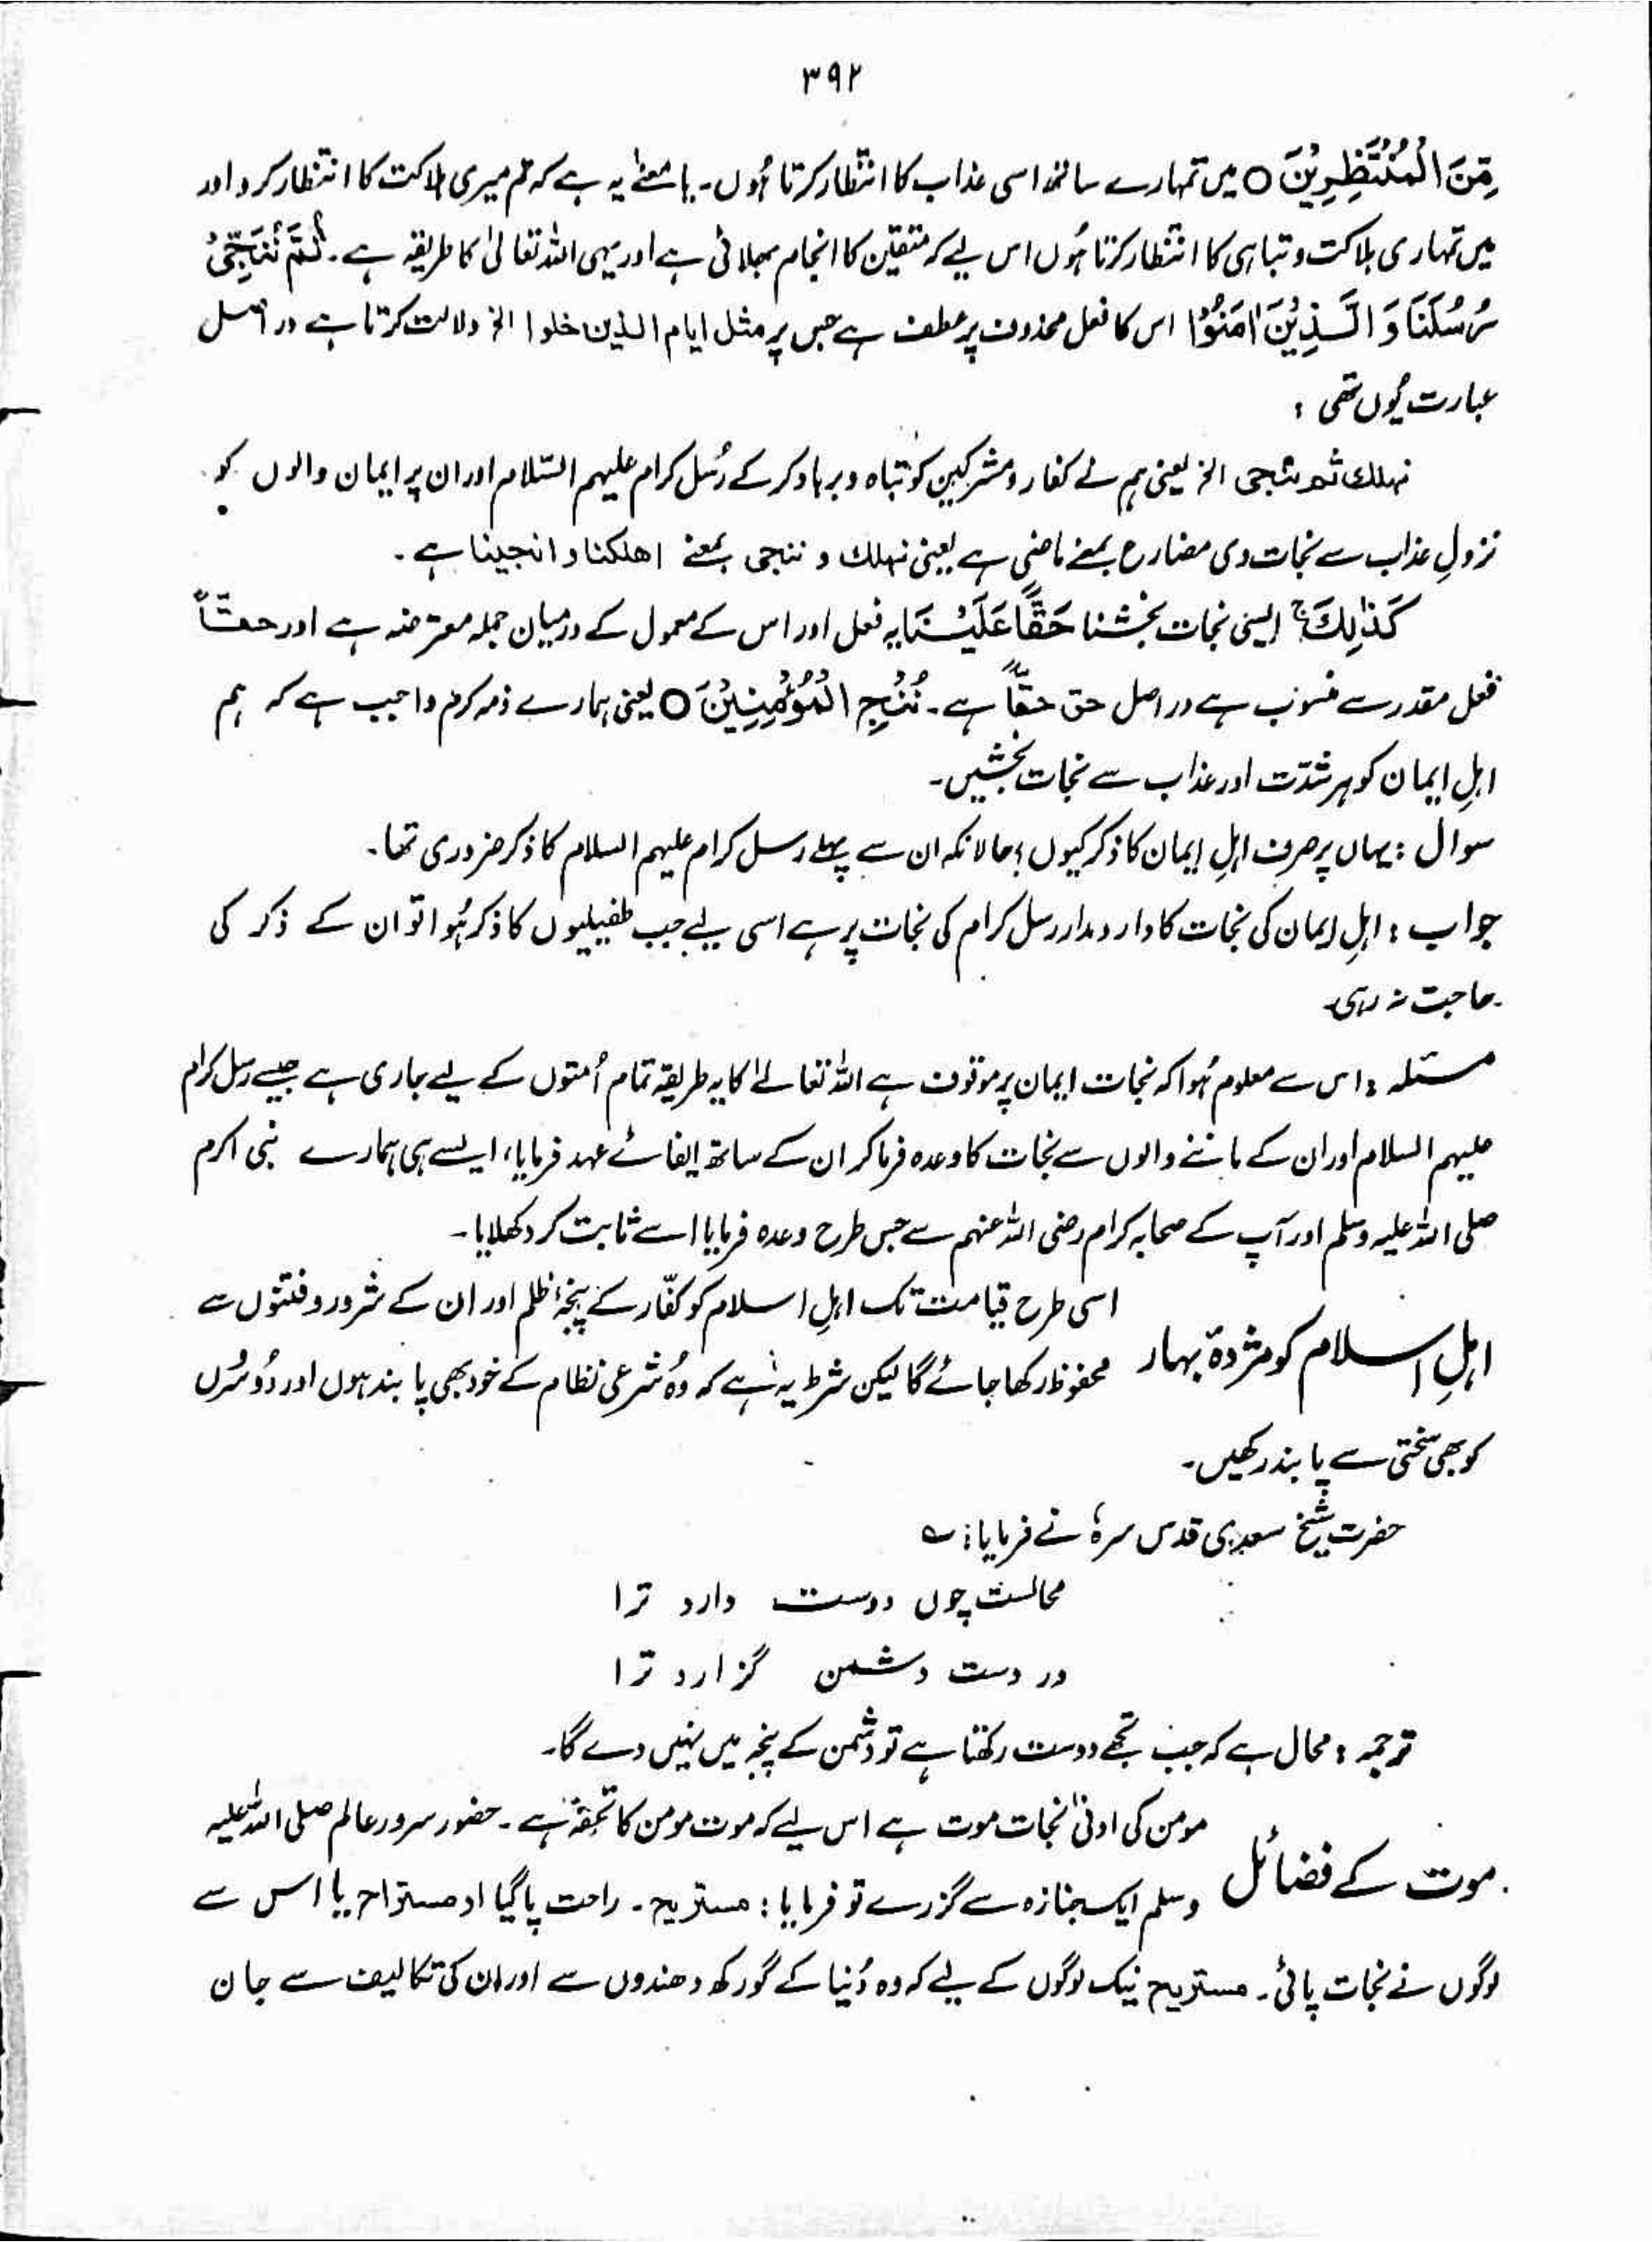 ۳۹۲
مِّنَ الْمُنْتَظِرِیْنَ ○ میں تمہارے ساتھ اسی عذاب کا انتظار کرتا ہُوں۔ یا معنےٰ یہ ہے کہ تم میری ہلاکت کا انتظار کرو اور
میں تمہاری ہلاکت و تباہی کا انتظار کرتا ہُوں اس لیے کہ متقین کا انجام بھلائی ہے اور یہی اللہ تعالیٰ کا طریقہ ہے۔ ثُمَّ نُنَجِّیْ
رُسُلَنَا وَ الَّذِیْنَ اٰمَنُوْا اس کا فعل محذوف پر عطف ہے جس پر مثل ایام الذین خلوا الخ دلالت کرتا ہے در اصل
عبارت یُوں تھی :
نہلك ثم ننجی الخ یعنی ہم نے کفار و مشرکین کو تباہ و برباد کر کے رُسل کرام علیہم السّلام اور ان پر ایمان والوں کو
نزولِ عذاب سے نجات دی مضارع بمعنے ماضی ہے یعنی نہلك و ننجی بمعنے اهلکنا و انجینا ہے۔
كَذٰلِكَ ۚ ایسی نجات بخشنا حَقًّا عَلَیْـنَا یہ فعل اور اس کے معمول کے درمیان جملہ معترضہ ہے اور حقًّا
فعل مقدر سے منسوب ہے در اصل حق حقًّا ہے۔ نُنْجِ الْمُؤْمِنِیْنَ ○ یعنی ہمارے ذمہ کرم واجب ہے کہ ہم
اہلِ ایمان کو ہر شدّت اور عذاب سے نجات بخشیں۔
سوال : یہاں پر صرف اہلِ ایمان کا ذکر کیوں ؛ حالانکہ ان سے پہلے رسل کرام علیہم السلام کا ذکر ضروری تھا۔
جواب : اہلِ ایمان کی نجات کا دار و مدار رسل کرام کی نجات پر ہے اسی لیے جب طفیلیوں کا ذکر ہُوا تو ان کے ذکر کی
حاجت نہ رہی۔
مسئلہ : اس سے معلوم ہُوا کہ نجات ایمان پر موقوف ہے اللہ تعالےٰ کا یہ طریقہ تمام اُمتوں کے لیے جاری ہے جیسے رسل کرام
علیہم السلام اور ان کے ماننے والوں سے نجات کا وعدہ فرما کر ان کے ساتھ ایفائے عہد فرمایا، ایسے ہی ہمارے نبی اکرم
صلی اللہ علیہ وسلم اور آپ کے صحابہ کرام رضی اللہ عنہم سے جس طرح وعدہ فرمایا اسے ثابت کر دکھلایا۔
اہلِ اسلام کو مژدۂ بہار
اسی طرح قیامت تک اہلِ اسلام کو کفّار کے پنجۂ ظلم اور ان کے شرور و فتنوں سے
محفوظ رکھا جائے گا لیکن شرط یہ ہے کہ وُہ شرعی نظام کے خود بھی پابند ہوں اور دُوسُروں
کو بھی سختی سے پابند رکھیں۔
حضرت شیخ سعدی قدس سرہٗ نے فرمایا : ؎
محالست چوں دوست دارد ترا
در دست دشمن گزارد ترا
ترجمہ : محال ہے کہ جب تجھے دوست رکھتا ہے تو دشمن کے پنجہ میں نہیں دے گا۔
موت کے فضائل
مومن کی ادنیٰ نجات موت ہے اس لیے کہ موت مومن کا تحفہ ہے۔ حضور سرور عالم صلی اللہ علیہ
وسلم ایک جنازہ سے گزرے تو فرمایا : مستریح۔ راحت پا گیا او مستراح یا اس سے
لوگوں نے نجات پائی۔ مستریح نیک لوگوں کے لیے کہ وہ دُنیا کے گورکھ دھندوں سے اور ان کی تکالیف سے جان